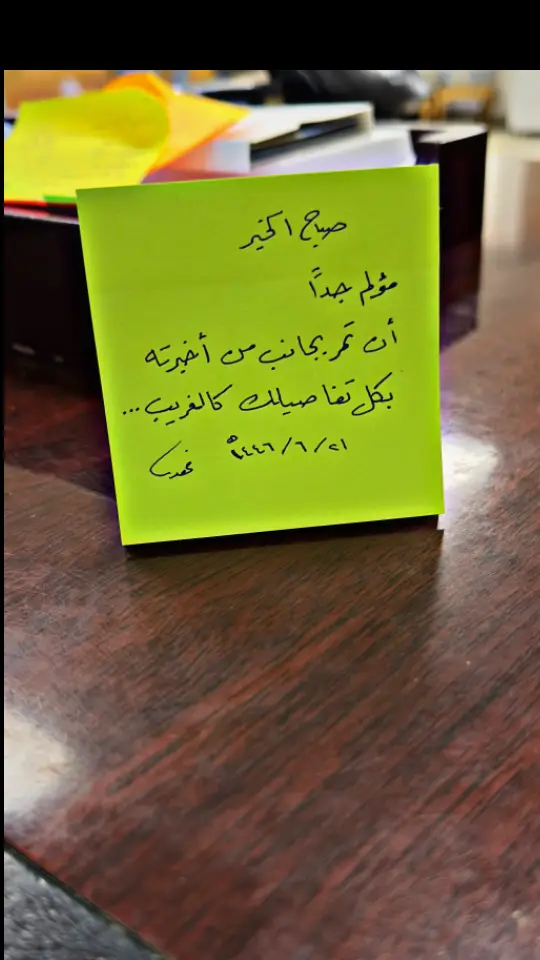 صباح الخير
مؤلم جداً
أن تمر بجانب من أخبرته
بكل تفاصيلك كالغريب...
٢١/٦/١٤٤٦هـ